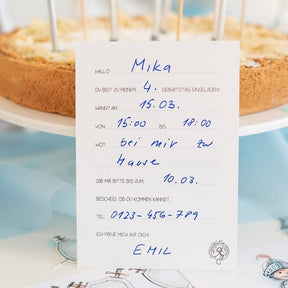 HALLO Mika
DU BIST ZU MEINEM 4. GEBURTSTAG EINGELADEN
WANN? AM 15.03.
VON 15:00 BIS 18:00
WO? bei mir zu
Hause
GIB MIR BITTE BIS ZUM 10.03.
BESCHEID, OB DU KOMMEN KANNST.
TEL: 0123-456-789
ICH FREUE MICH AUF DICH!
EMIL